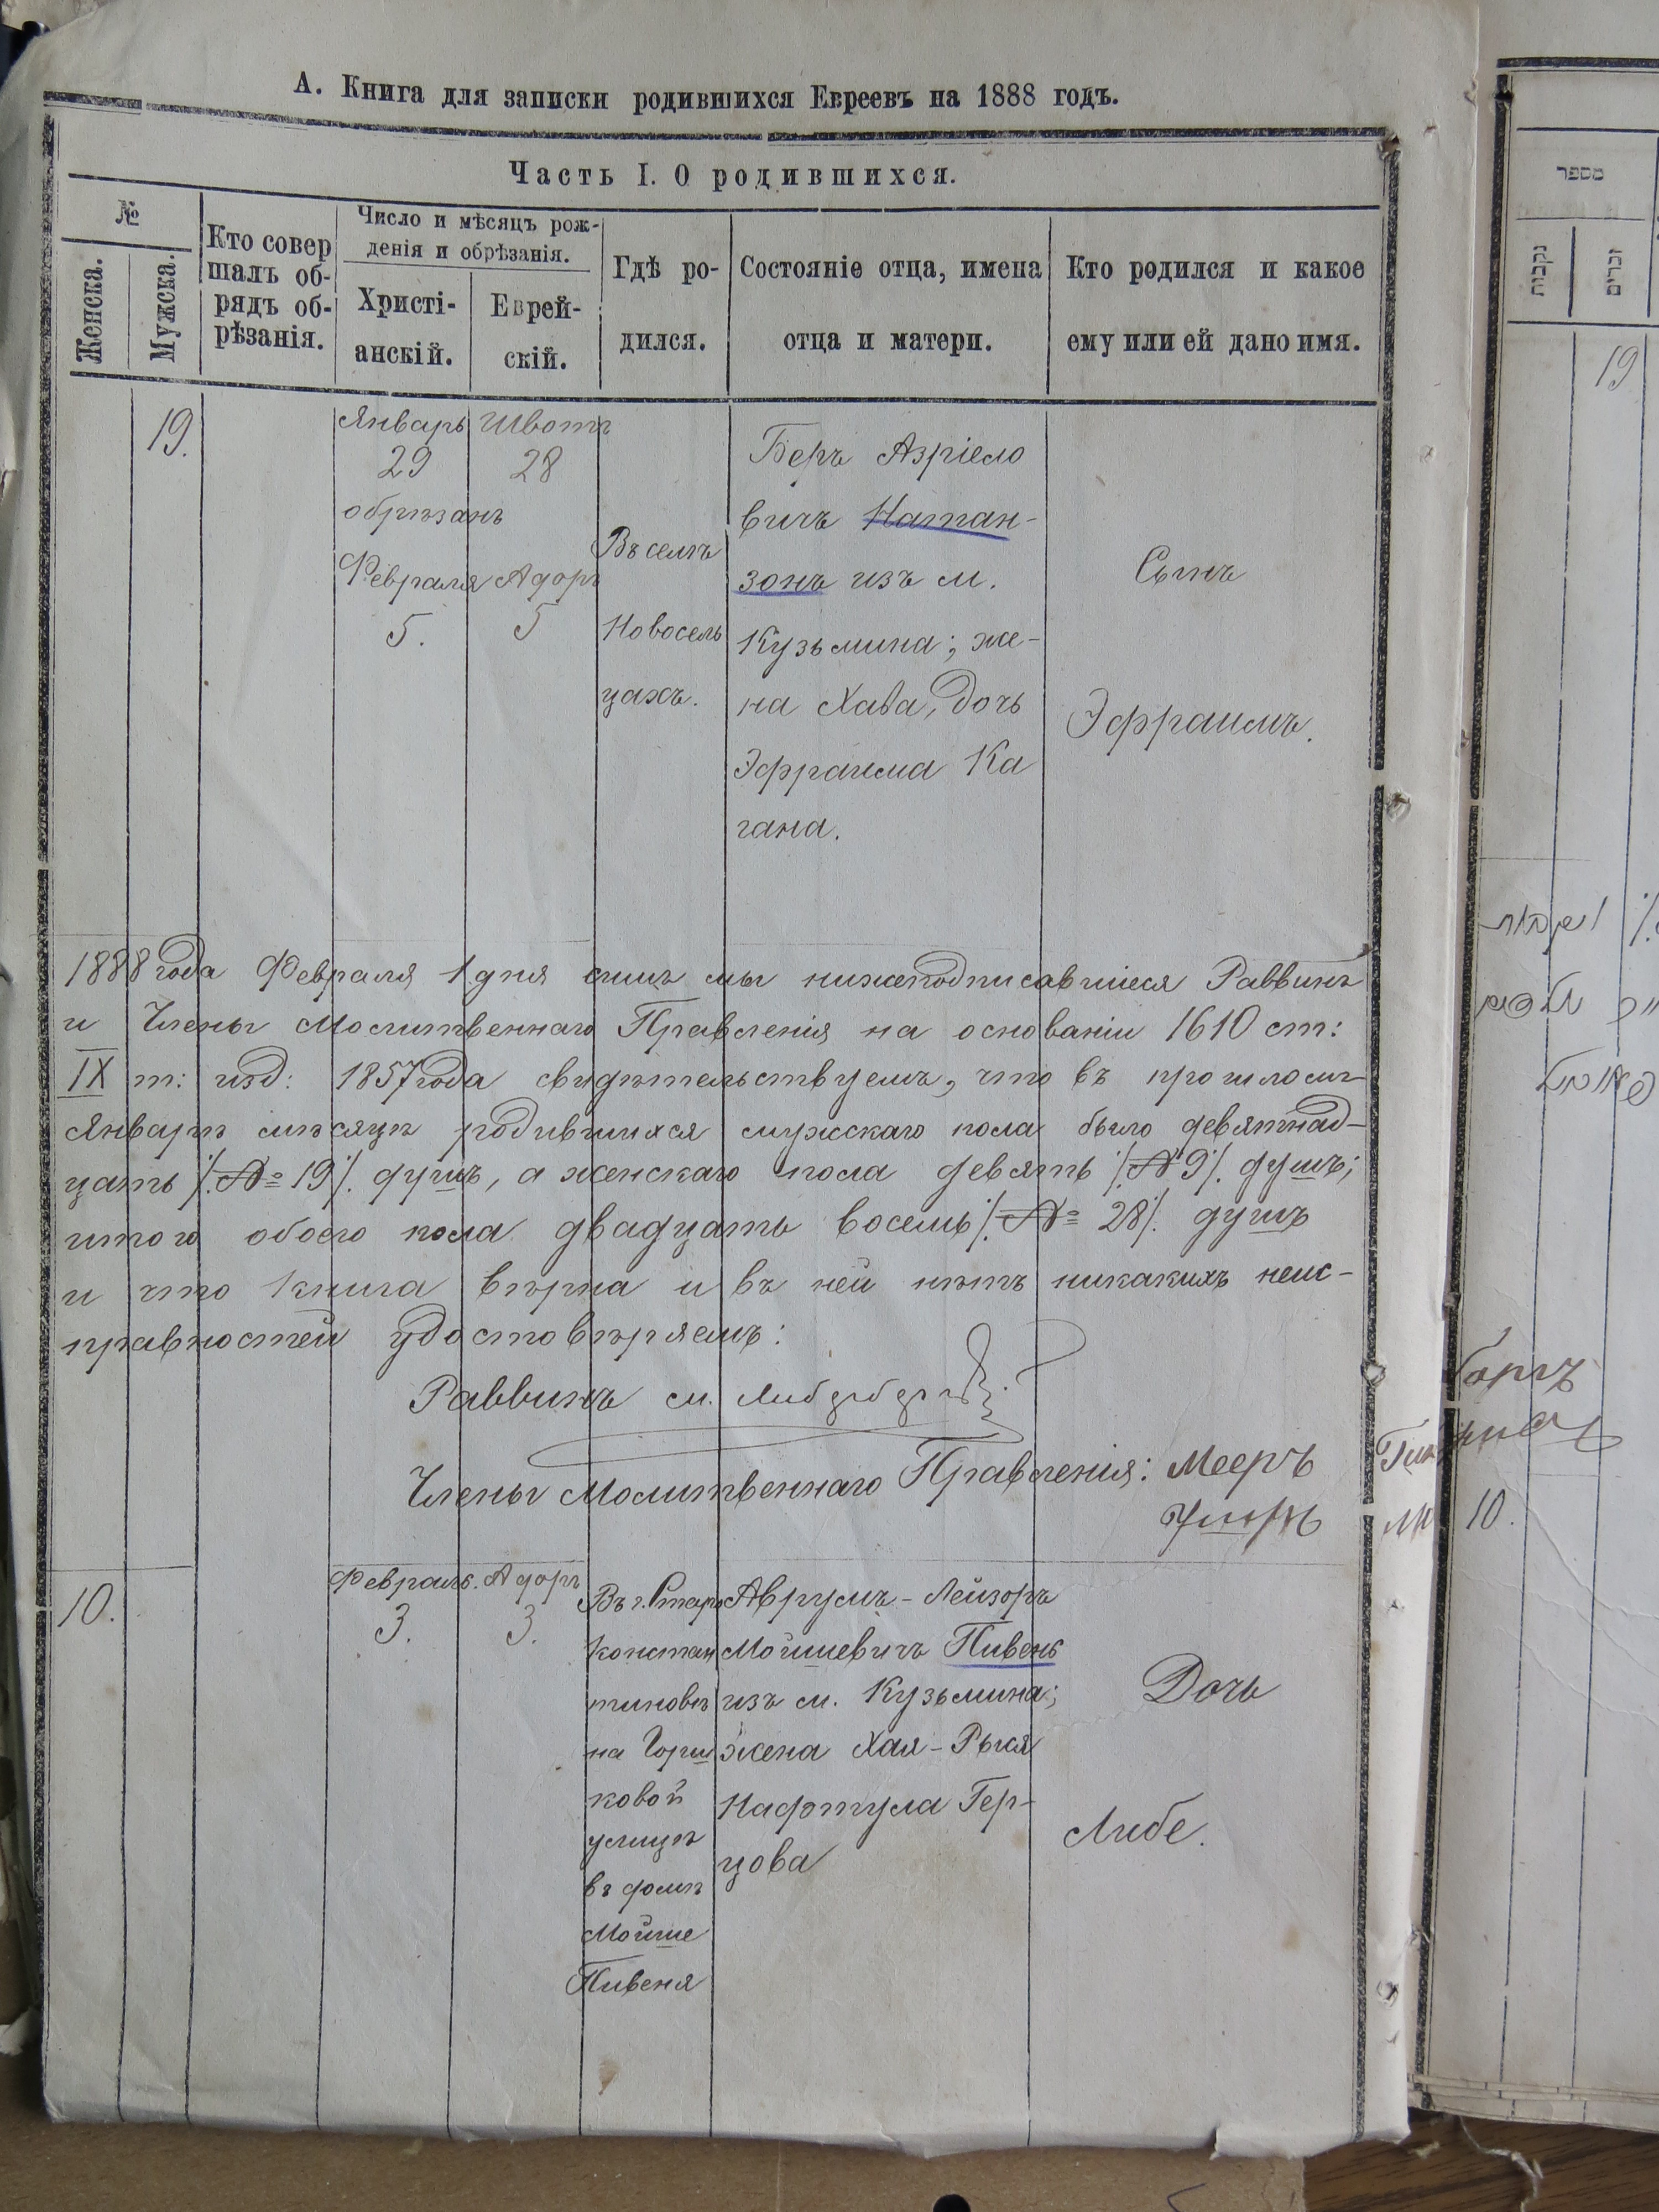 А. Книга для записки родившихся Евреевъ на 1888 годъ.
Часть I. О родившихся.
№
Женска.
Мужска.
Кто совер
шалъ об-
рядъ об-
рѣзанія.
Число и мѣсяцъ рож-
денія и обрѣзанія.
Христі-
анскій.
Еврей-
скій.
Гдѣ ро-
дился.
Состояніе отца, имена
отца и матери.
Кто родился и какое
ему или ей дано имя.
19.
Январь
29
обрѣзанъ
Февраля
5.
Швотъ
28
Адоръ
5
Въ селѣ
Новосель
цахъ.
Беръ Азріело
вичъ Натан-
зонъ изъ м.
Кузьмина; же-
на Хава, дочь
Эфраима Ка
гана.
Сынъ
Эфраимъ.
1888 года Февраля 1 дня мы нижеподписавшіеся Раввинъ
и Члены Молитвеннаго Правленія на основаніи 1610 ст:
IX т: изд: 1857 года свидѣтельствуемъ, что въ прошломъ
Январѣ мѣсяцѣ родившихся мужскаго пола было девятнад-
цать ./. № 19 ./. душъ, а женскаго пола девять ./. № 9 ./. душъ;
итого обоего пола двадцать восемь ./. № 28 ./. душъ
и что книга вѣрна и въ ней нѣтъ никакихъ неис-
правностей удостовѣряемъ:
Раввинъ
Члены Молитвеннаго Правленія: Мееръ
10.
Февраль.
3.
Адоръ
3.
Въ г. Старо
констан
тиновѣ
на Горш
ковой
улицѣ
въ домѣ
Мойше
Пивеня
Аврумъ-Лейзоръ
Мойшевичъ Пивень
изъ м. Кузьмина;
жена Хая-Рыся
Нафтула Гер-
цова
Дочь
Либе.
מספר
נקבות
זכרים
19
10.